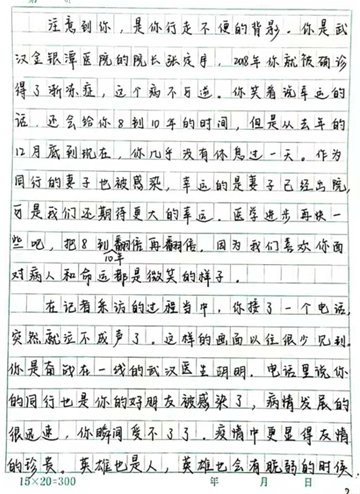 注意到你，是你行走不便的背影。你是武
汉金银潭医院的院长张定宇，2018年你就被确诊
得了渐冻症，这个病不可逆。你笑着说幸运的
话，还会给你8到10年的时间，但是从去年的
12月底到现在，你几乎没有休息过一天。作为
同行的妻子也被感染，幸运的是妻子已经出院，
可是我们还期待更大的幸运。医学进步再快一
些吧，把8到10年翻倍再翻倍。因为我们喜欢你面
对病人和命运都是微笑的样子。
在记者采访的过程当中，你接了一个电话，
突然就泣不成声了。这样的画面以往很少见到。
你是奋战在一线的武汉医生阴明。电话里说你
的同行也是你的好朋友被感染了，病情发展的
很迅速，你瞬间受不了了。疫情中更显得友情
的珍贵。英雄也是人，英雄也会有脆弱的时候、
15×20=300 年 月 日